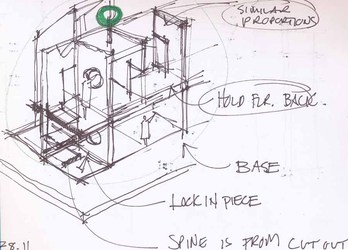 SIMILAR
PROPORTIONS
HOLD FUR. BACK.
BASE
LOCK IN PIECE
SPINE IS FROM CUT OUT
28.11